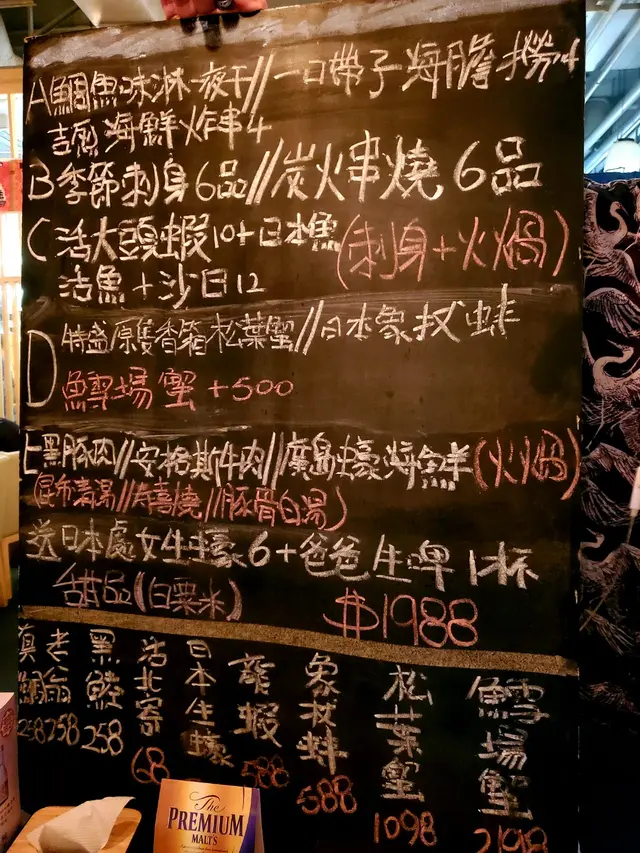 A鯛魚味淋一夜干//一口帶子海膽撈4
吉列海鮮炸串4
B季節刺身6品//炭火串燒6品
C活大頭蝦10+日本魚(刺身+火鍋)
活魚+沙白12
D特盛原隻香箱松葉蟹//日本象拔蚌
鱈場蟹+500
E黑豚肉//安格斯牛肉//廣島蠔海鮮(火鍋)
(昆布清湯//壽喜燒//豚骨白湯)
送日本處女生蠔6+爸爸生啤1杯
甜品(白粟米)
$1988
真鯛258
老翁258
黑鯥258
活北寄68
日本生蠔
龍蝦588
象拔蚌588
松葉蟹1098
鱈場蟹2198
The
PREMIUM
MALT'S